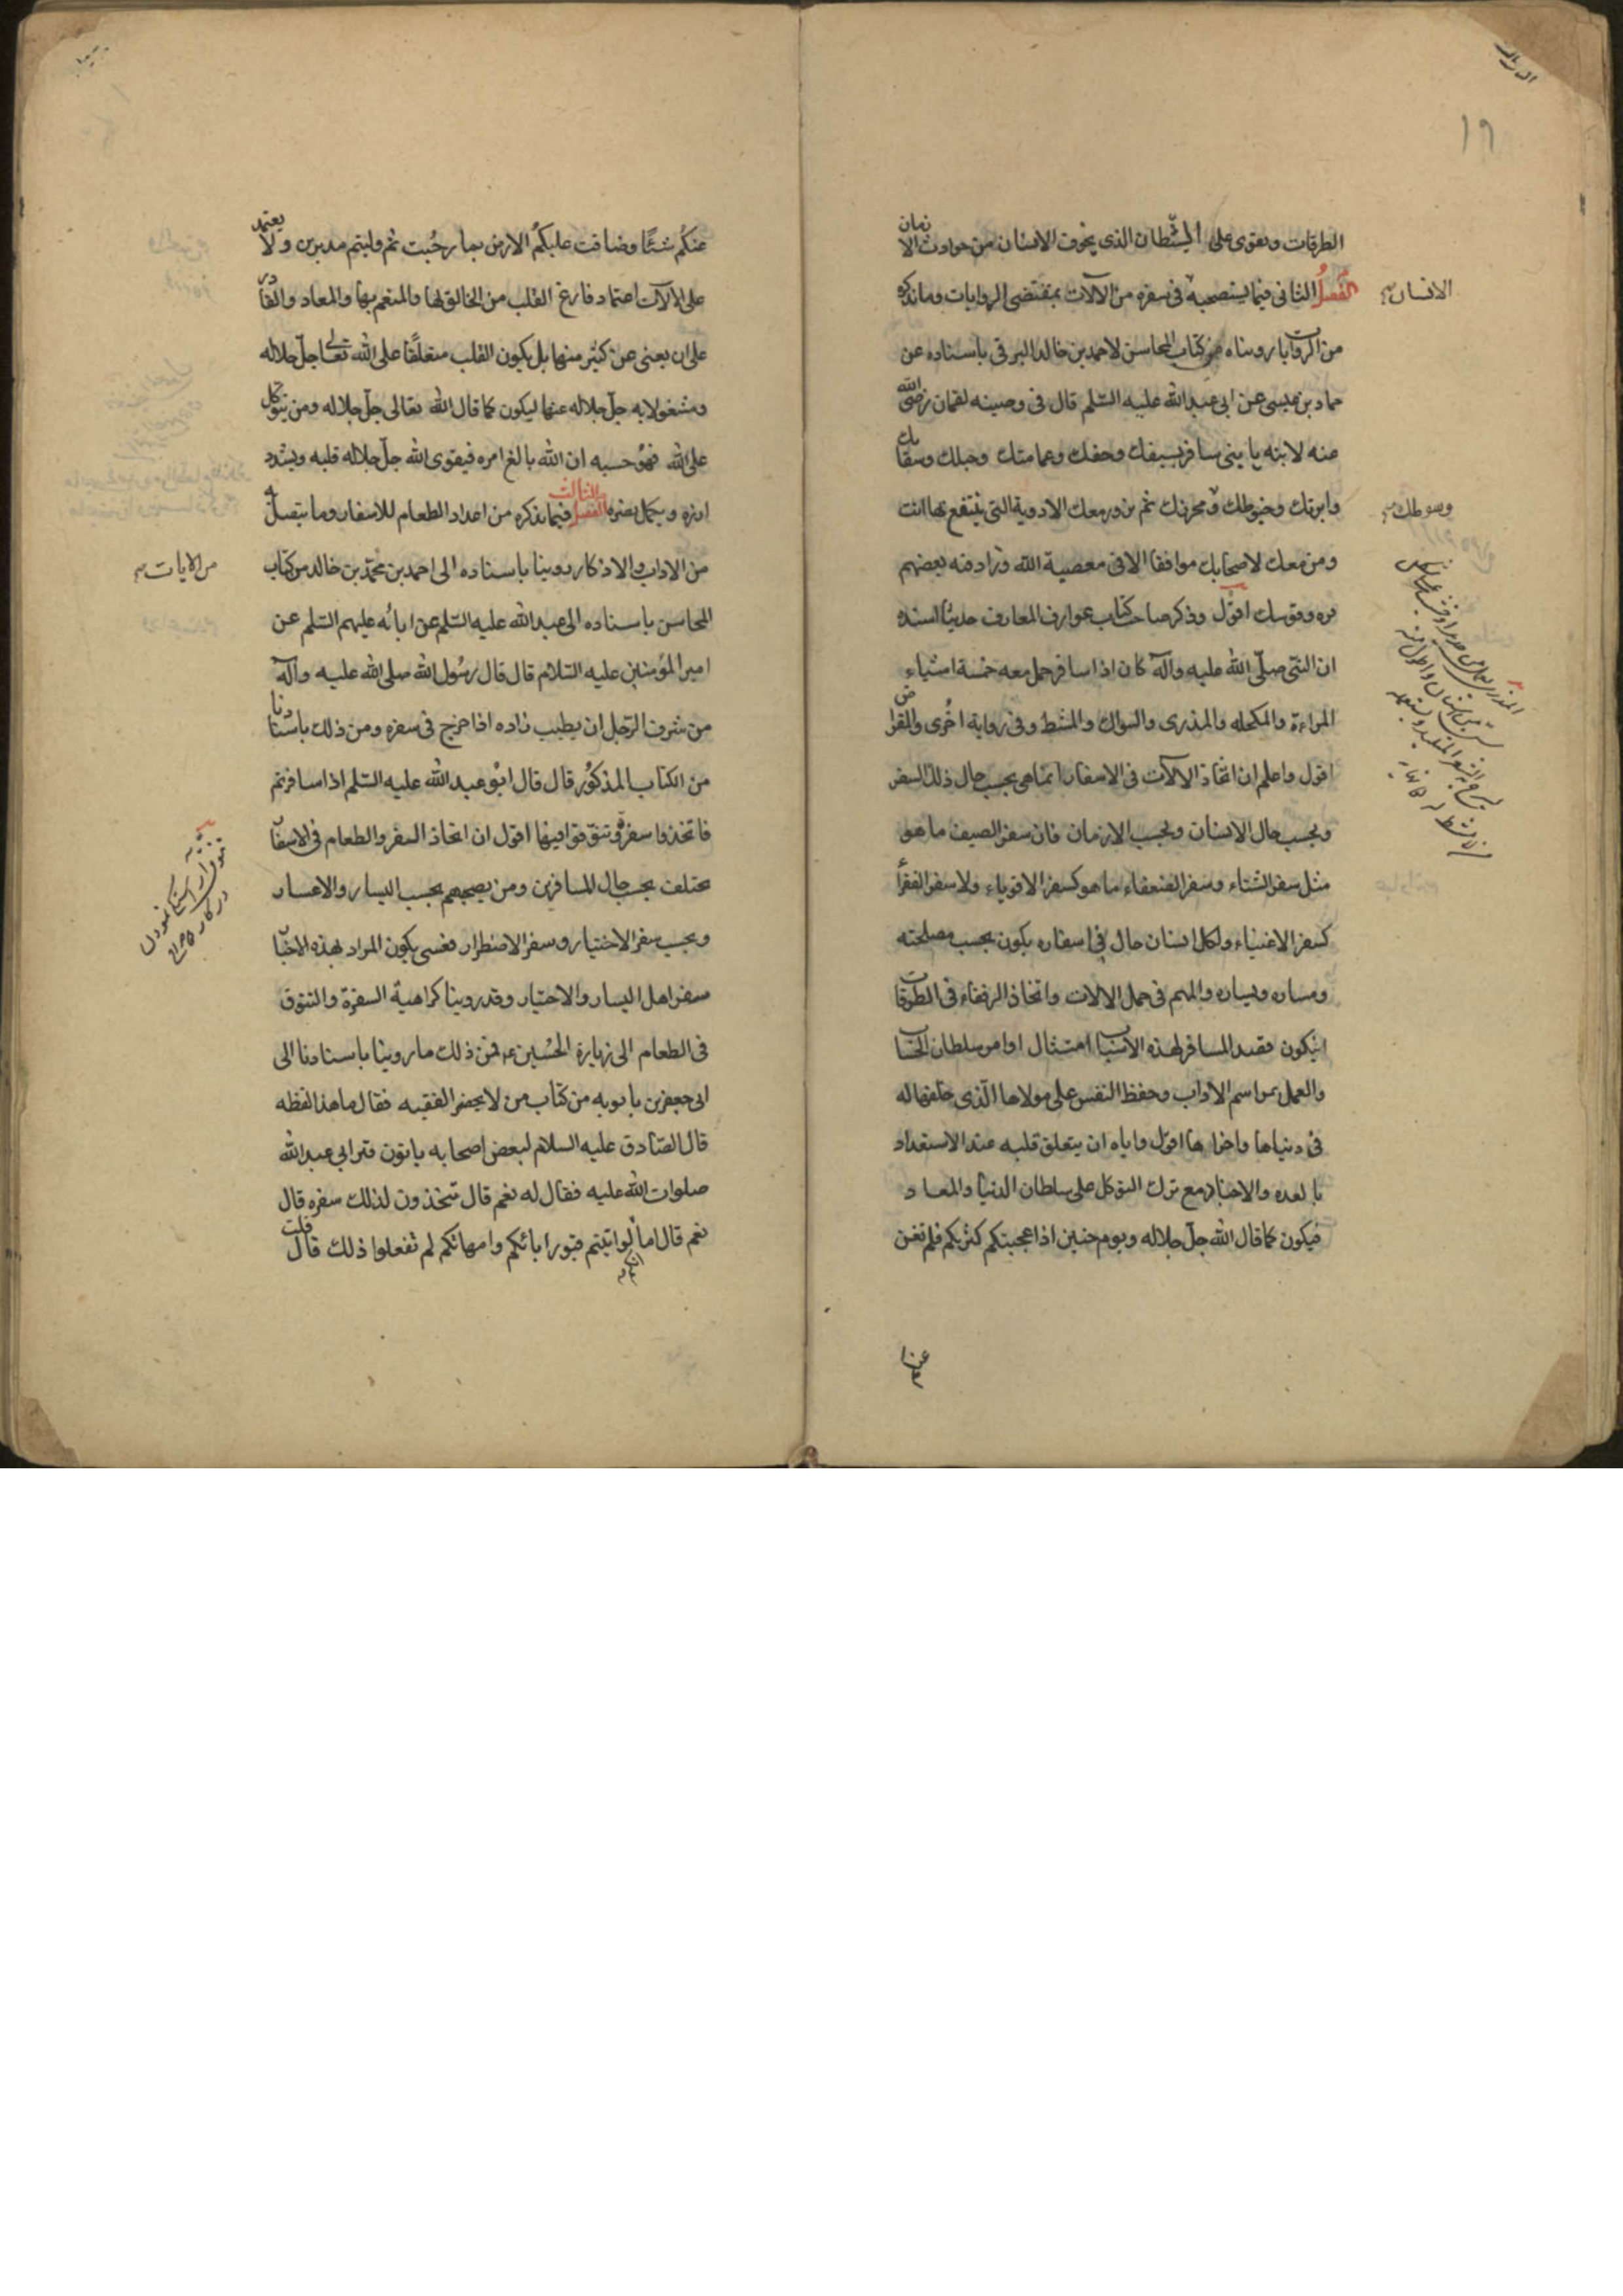 ١٩
الطرقات ويقوى على الشيطان الذى يخوف الانسان من حوادث الازمان
الفصل الثانى فيما يستصحبه فى سفره من الآلات بمقتضى الروايات وما نذكره
الانسان
من الروايات رويناه من كتاب المحاسن لاحمد بن خالد البرقى باسناده عن
حماد بن عيسى عن ابى عبد الله عليه السلم قال فى وصيته لقمان رضى الله
عنه لابنه يا بنى سافر بسيفك وخفك وعمامتك وحبلك وسقاءك
وابرتك وخيوطك ومخرزك ثم تزود معك الادوية التى ينتفع بها انت
وسوطك
ومن معك لاصحابك موافقا الا فى معصية الله وزاد فيه بعضهم
فره وقوسك اقول وذكر صاحب كتاب عوارف المعارف حديثا اسنده
ان النبى صلى الله عليه وآله كان اذا سافر حمل معه خمسة اشياء
المراءة والمكحله والمذرى والسواك والمشط وفى رواية اخرى والمقراض
اقول واعلم ان اتخاذ الالآت فى الاسفار انما هى بحسب حال ذلك السفر
وبحسب حال الانسان وبحسب الازمان فان سفر الصيف ما هو
مثل سفر الشتاء وسفر الضعفاء ما هو كسفر الاقوياء ولا سفر الفقراء
كسفر الاغنياء ولكل انسان حال فى اسفاره يكون بحسب مصلحته
ومساره ويساره والمهم فى حمل الالات واتخاذ الرفقاء فى الطرقات
ان يكون قصد المسافر لهذه الاسباب امتثال اوامر سلطان الحساب
والعمل بمراسم الاداب وحفظ النفس على مولاها الذى خلقها له
فى دنياها واخراها اقول واياه ان يتعلق قلبه عند الاستعداد
بالعده والاجناد مع ترك التوكل على سلطان الدنيا والمعاد
فيكون كما قال الله جل جلاله ويوم حنين اذا عجبتكم كثرتكم فلم تغن
عنكم
عنكم شيئا وضاقت عليكم الارض بما رحبت ثم وليتم مدبرين ولا يعتمد
على الآلات اعتماد فارغ القلب من الخالق لها والمنعم بها والمعاد والقادر
على ان يغنى عن كثير منها بل يكون القلب متعلقا على الله تعالى جل جلاله
ومشغولا به جل جلاله عنها ليكون كما قال الله تعالى جل جلاله ومن يتوكل
على الله فهو حسبه ان الله بالغ امره فيقوى الله جل جلاله قلبه ويشدد
ازره ويكمل نصره الفصل الثالث فيما نذكره من اعداد الطعام للاسفار وما يتصل به
من الاداب والاذكار روينا باسناده الى احمد بن محمد بن خالد من كتاب
من الايات
المحاسن باسناده الى عبد الله عليه السلم عن ابائه عليهم السلم عن
امير المؤمنين عليه السلام قال قال رسول الله صلى الله عليه وآله
من شرف الرجل ان يطيب زاده اذا خرج فى سفره ومن ذلك باسنادنا
من الكتاب المذكور قال قال ابو عبد الله عليه السلم اذا سافرتم
فاتخذوا سفرة وتنوقوا فيها اقول ان اتخاذ السفر والطعام فى الاسفار
يختلف بحسب حال المسافرين ومن يصحبهم بحسب اليسار والاعسار
وبحسب سفر الاختيار وسفر الاضطرار فعسى يكون المراد بهذه الاخبار
سفر اهل اليسار والاختيار وقد روينا كراهية السفرة والتنوق
فى الطعام الى زيارة الحسين ع فمن ذلك ما روينا باسنادنا الى
ابى جعفر بن بابويه من كتاب من لا يحضر الفقيه فقال ما هذا لفظه
قال الصادق عليه السلام لبعض اصحابه ياتون قبر ابى عبد الله
صلوات الله عليه فقال له نعم قال تتخذون لذلك سفره قال
نعم قال اما لو اتيتم قبور ابائكم وامهاتكم لم تفعلوا ذلك قال قلت